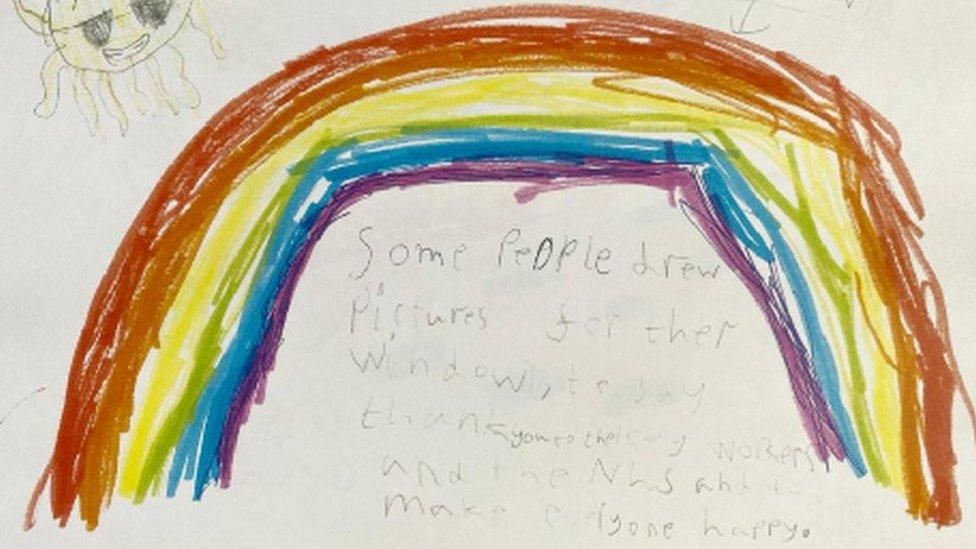 Some PeoPle drew
Pictures for ther
window, to say
thank you to the key workers
and the NHS and to
make everyone happy.